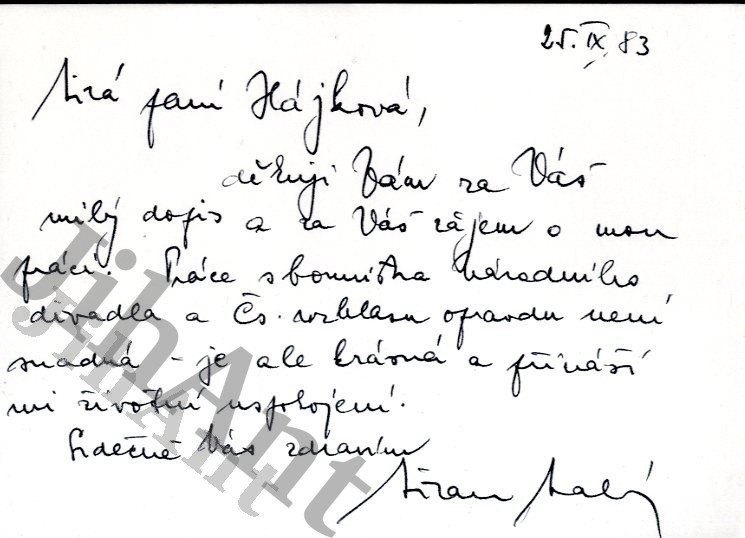 25. IX. 83
Milá paní Hájková,
děkuji Vám za Váš
milý dopis a za Váš zájem o mou
práci. Práce sbormistra Národního
divadla a Čs. rozhlasu opravdu není
snadná - je ale krásná a přináší
mi životní uspokojení.
Srdečně Vás zdravím
Milan Malý
JihAnt
JihAnt